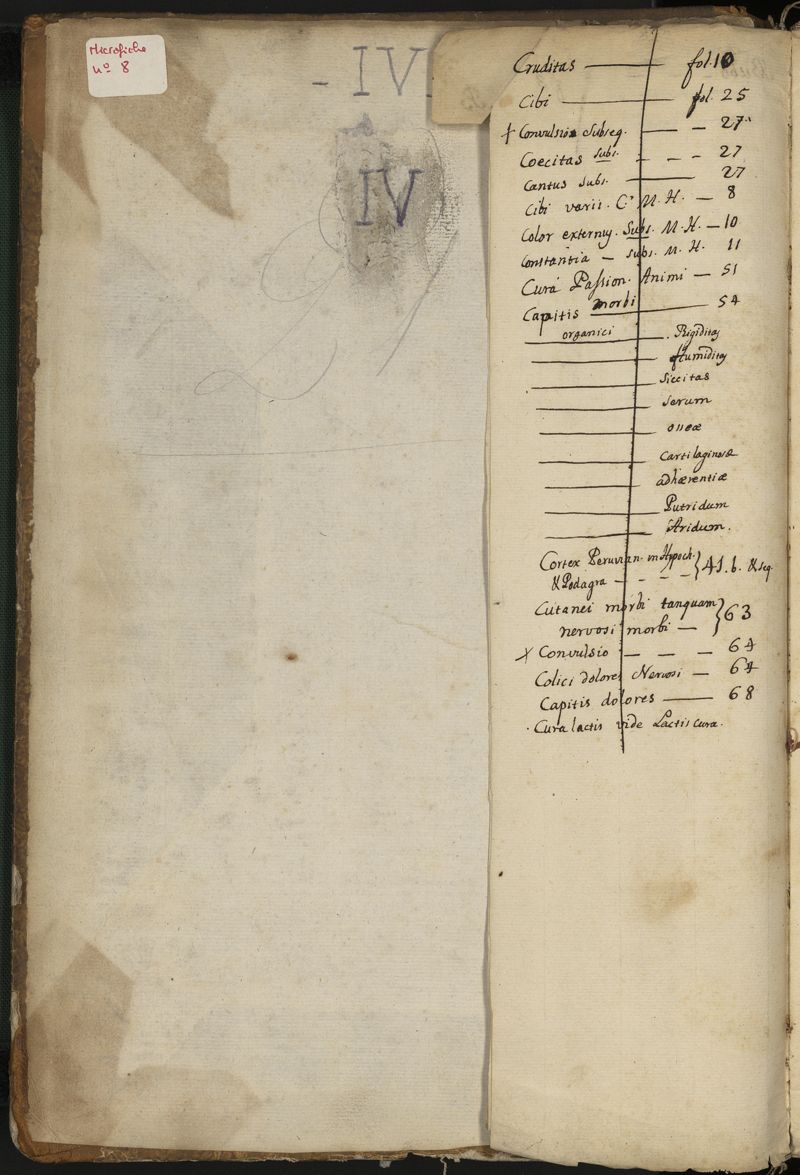 Microfiche
nº 8
- IV
IV
Cruditas fol. 10
Cibi fol. 25
+ Convulsion Subseq. — - 27
Coecitas Subs. - - - 27
Cantus Subs. — 27
Cibi varii. C. M. H. — 8
Color externus. Subs. M. H. — 10
Constantia — Subs. M. H. 11
Cura Passion. Animi — 51
Capitis morbi — 54
organici . Rigiditas
Humiditas
Siccitas
Serum
osseæ
Cartilaginosæ
adhærentiæ
Putridum
Aridum.
Cortex Peruvian. in Hypoch. } 41. b. & seq.
& Podagra - - - -
Cutanei morbi tanquam } 63
nervosi morbi —
+ Convulsio - — — 64
Colici dolores Nervosi — 64
Capitis dolores — 68
· Cura lactis vide Lactis cura.